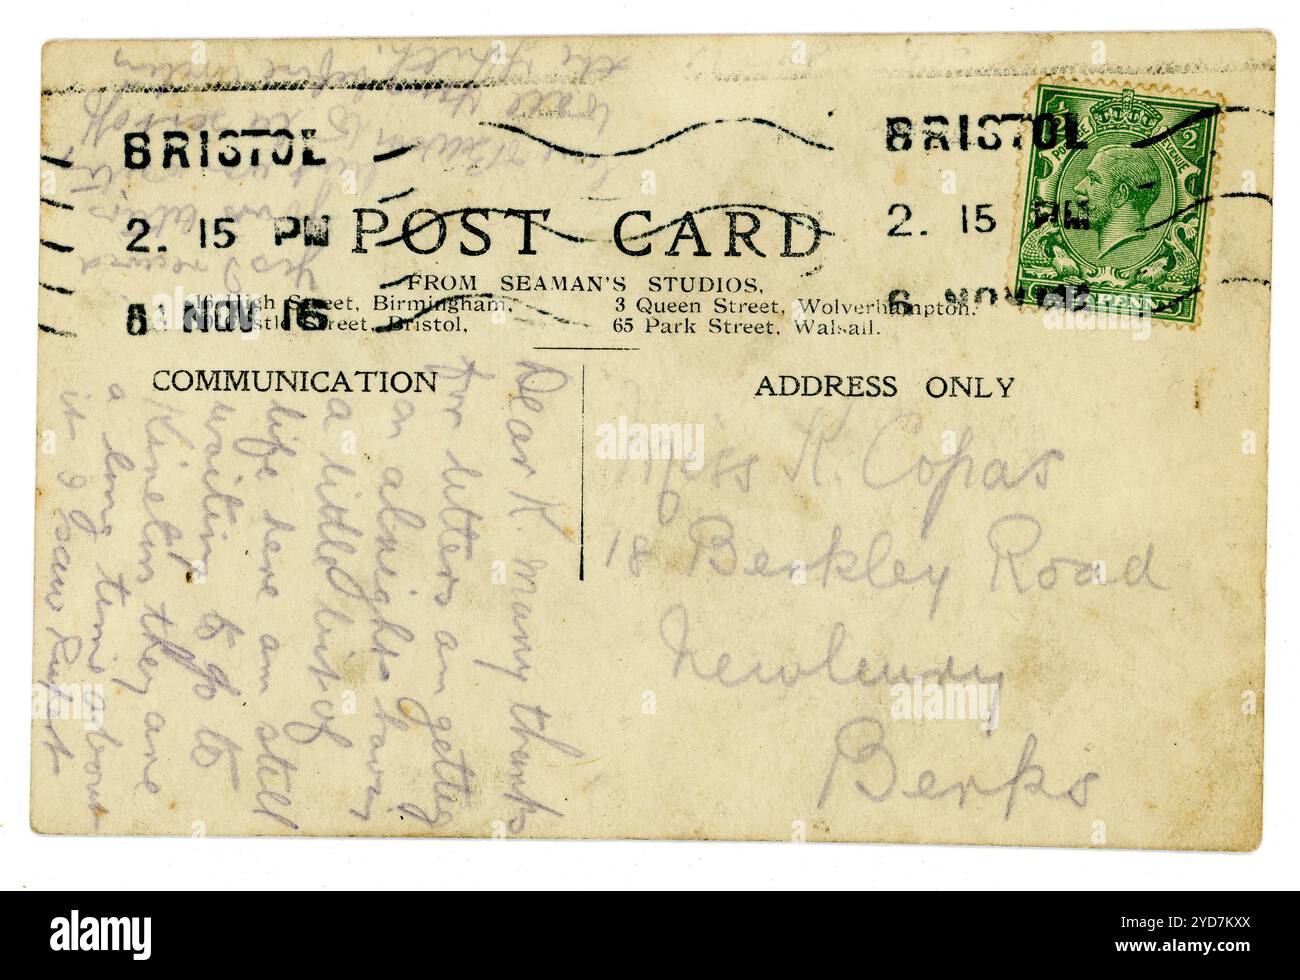 BRISTOL
2. 15 PM
6 NOV 16
BRISTOL
2. 15 PM
6 NOV
POSTAGE REVENUE
½ ½
HALFPENNY
POST CARD
FROM SEAMAN'S STUDIOS,
16 High Street, Birmingham, 3 Queen Street, Wolverhampton.
Castle Street, Bristol, 65 Park Street, Walsall.
COMMUNICATION
ADDRESS ONLY
Dear K. Many thanks
for letters am getting
on alright having
a little bit of
life here am still
waiting to go to
they are
a long time about
it I saw Rupert
Yes I received
before
Miss K. Copas
18 Berkley Road
Newbury
Berks
alamy
Image ID: 2YD7KXX
www.alamy.com